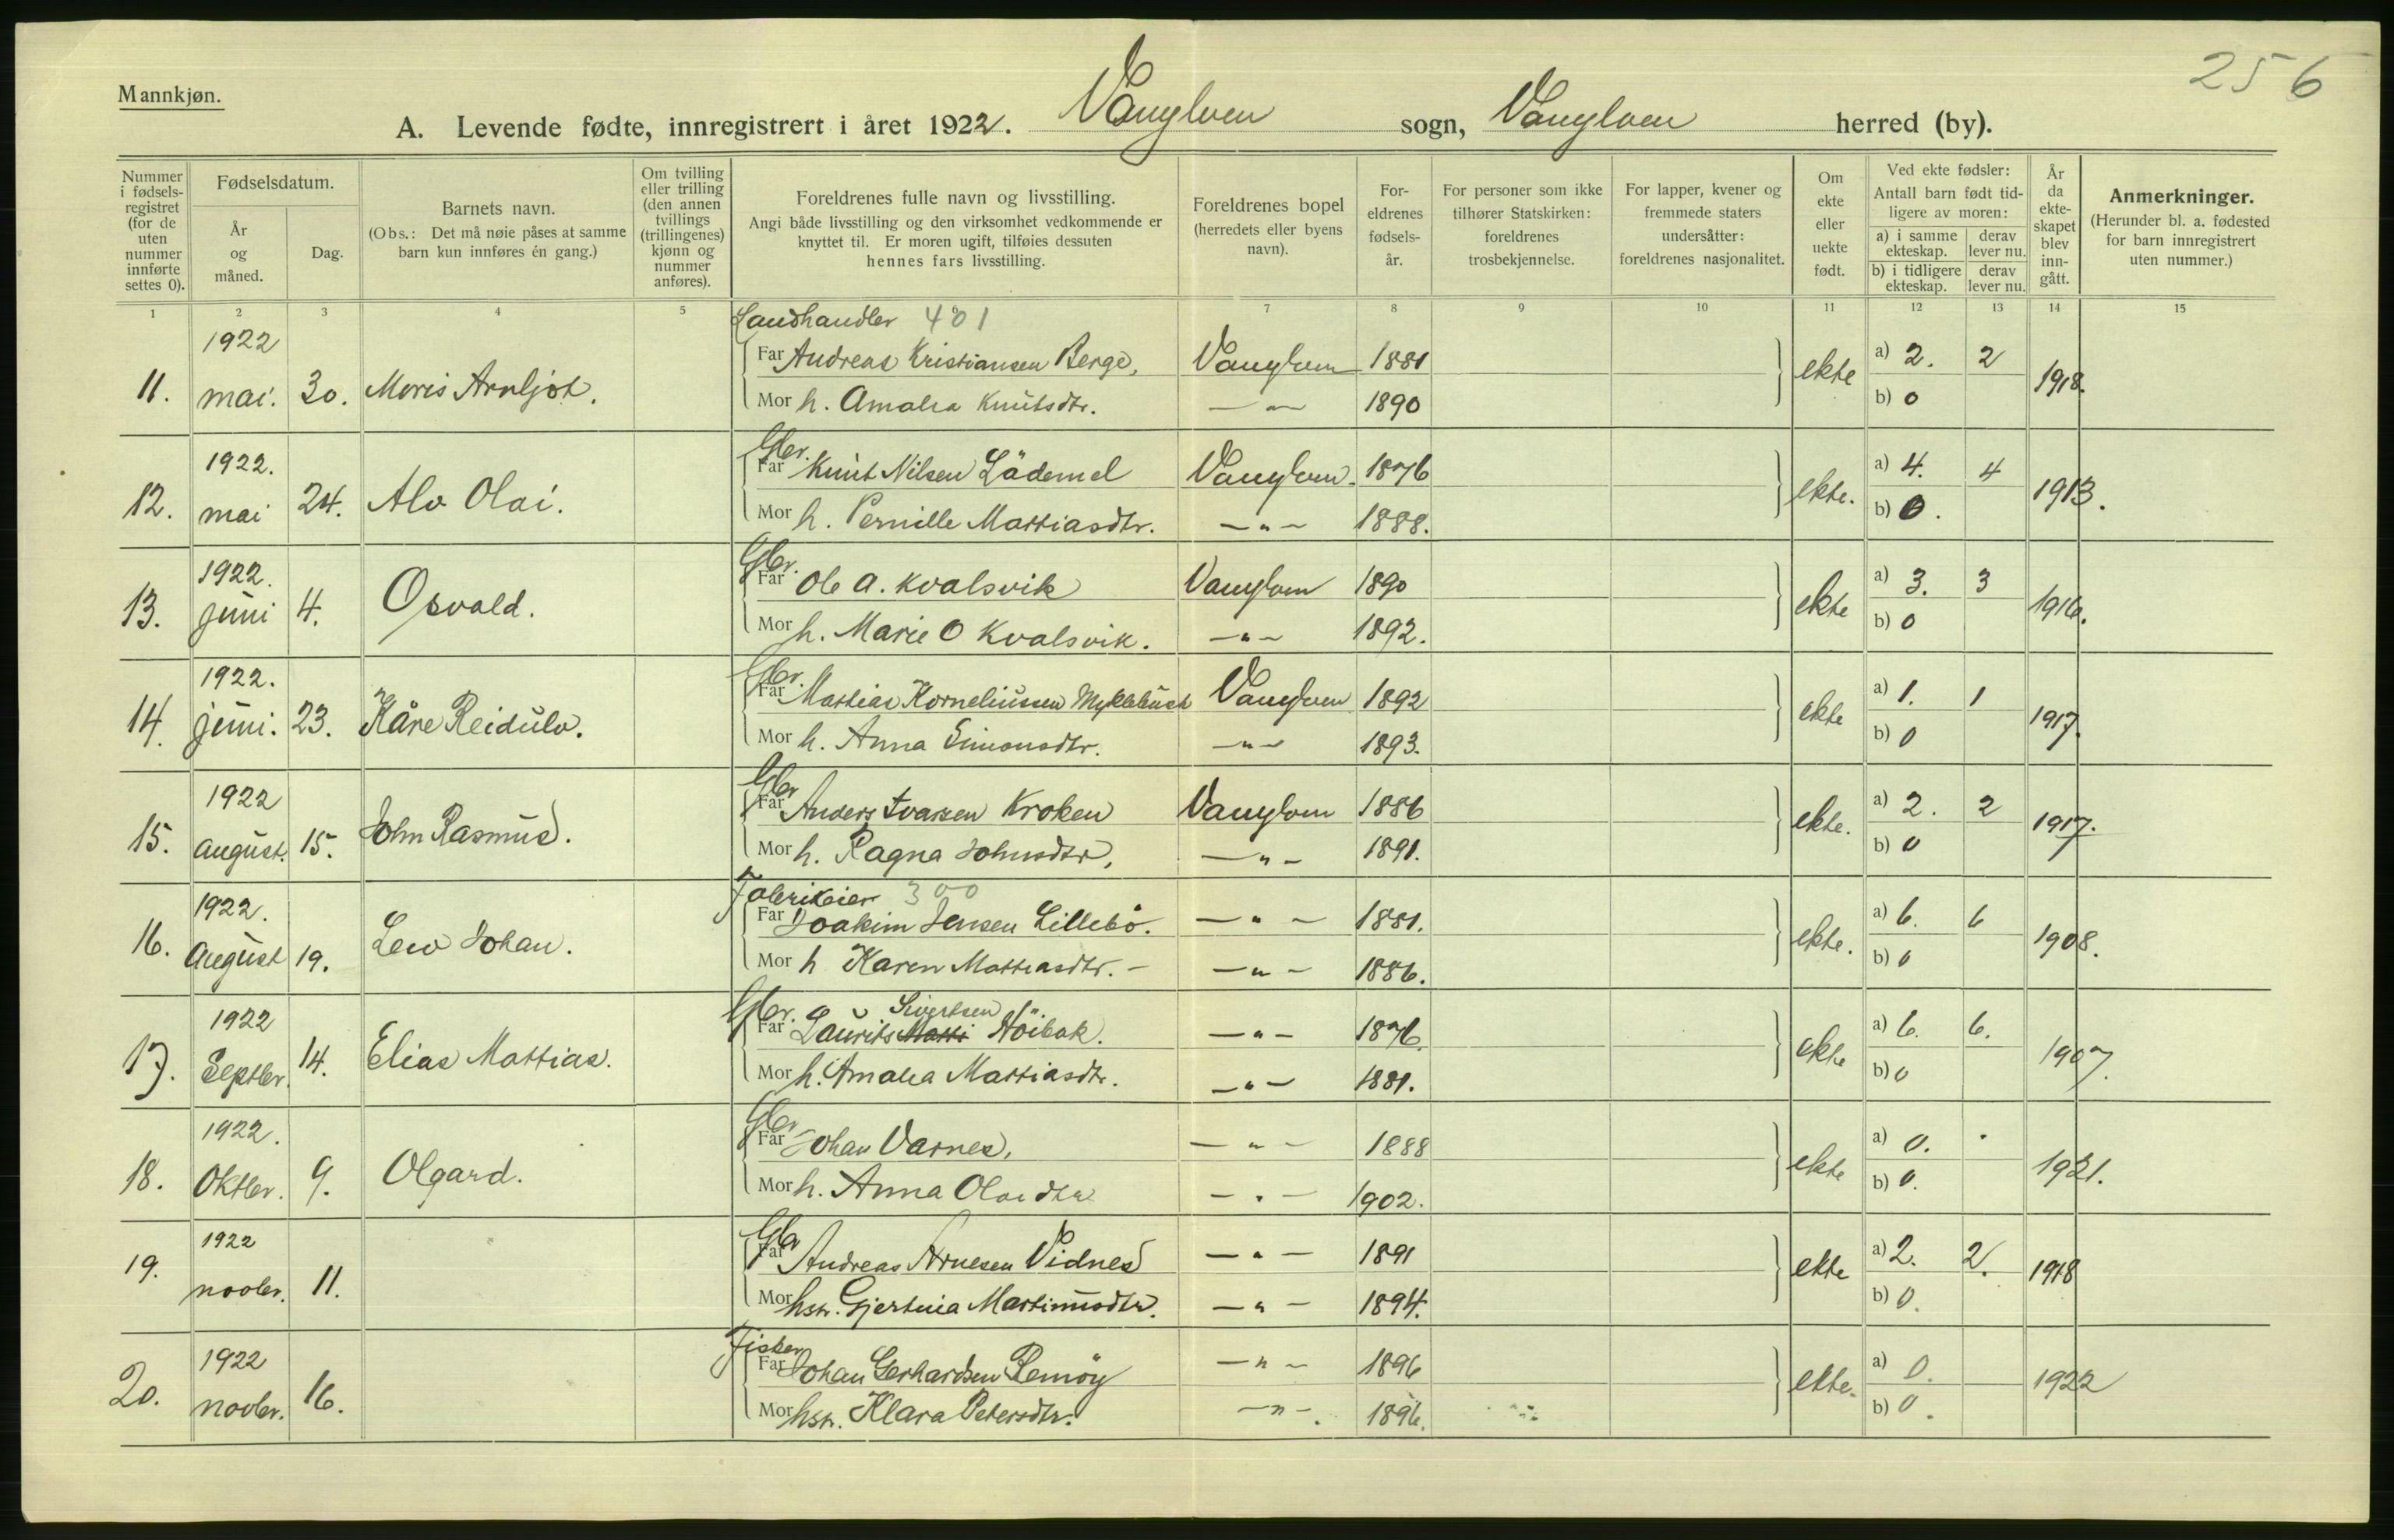 256
Mannkjøn.
A. Levende fødte, innregistrert i året 1922. Vanylven sogn, Vanylven herred (by).
Nummer i fødsels-registret (for de uten nummer innførte settes 0).
Fødselsdatum.
År og måned.
Dag.
Barnets navn.
(Obs.: Det må nøie påses at samme barn kun innføres én gang.)
Om tvilling eller trilling (den annen tvillings (trillingenes) kjønn og nummer anføres).
Foreldrenes fulle navn og livsstilling.
Angi både livsstilling og den virksomhet vedkommende er knyttet til. Er moren ugift, tilføies dessuten hennes fars livsstilling.
Foreldrenes bopel (herredets eller byens navn).
For-eldrenes fødsels-år.
For personer som ikke tilhører Statskirken: foreldrenes trosbekjennelse.
For lapper, kvener og fremmede staters undersåtter: foreldrenes nasjonalitet.
Om ekte eller uekte født.
Ved ekte fødsler:
Antall barn født tid-ligere av moren:
a) i samme ekteskap. derav lever nu.
b) i tidligere ekteskap. derav lever nu.
År da ekte-skapet blev inn-gått.
Anmerkninger.
(Herunder bl. a. fødested for barn innregistrert uten nummer.)
1 2 3 4 5 6 7 8 9 10 11 12 13 14 15
Landhandler 401
11. 1922 mai. 30. Moris Arnljot. Far Andreas Kristiansen Berge, Vanylven 1881 ekte a) 2. 2 1918.
Mor h. Amalia Knutsdtr. —"— 1890 b) 0
Gbr.
12. 1922. mai 24. Alv Olai. Far Knut Nilsen Lådemel Vanylven. 1876 ekte. a) 4. 4 1913.
Mor h. Pernille Mattiasdtr. —"— 1888. b) 0.
Gbr.
13. 1922. juni 4. Osvald. Far Ole A. Kvalsvik Vanylven 1890 ekte a) 3. 3 1916.
Mor h. Marie O Kvalsvik. —"— 1892. b) 0
Gbr.
14. 1922. juni. 23. Kåre Reidulv. Far Mattias Korneliussen Myklebust Vanylven 1892 ekte a) 1. 1 1917.
Mor h. Anna Simonsdtr. —"— 1893. b) 0
Gbr
15. 1922 august. 15. John Rasmus. Far Anders Ivarsen Kroken Vanylven 1886 ekte. a) 2. 2 1917.
Mor h. Ragna Johnsdtr, —"— 1891. b) 0
Fabrikeier 300
16. 1922. August 19. Leiv Johan. Far Joakim Jensen Lillebö. —"— 1881. ekte. a) 6. 6 1908.
Mor h Karen Mattiasdtr. —"— 1886. b) 0
Gbr. Sivertsen
17. 1922 Septbr. 14. Elias Mattias. Far Laurits Matti Nöibak. —"— 1876. ekte a) 6. 6. 1907.
Mor h. Amalia Mattiasdtr. —"— 1881. b) 0
Gbr
18. 1922. Oktbr. 9. Olgard. Far Johan Varnes, —"— 1888 ekte a) 0. 1921.
Mor h. Anna Olaidtr —"— 1902. b) 0.
Gbr
19. 1922 novbr. 11. Far Andreas Arnesen Vidnes —"— 1891 ekte a) 2. 2. 1918
Mor hstr. Gjertina Martinusdtr. —"— 1894. b) 0.
Fisker
20. 1922 novbr. 16. Far Johan Gerhardsen Remöy —"— 1896 ekte. a) 0. 1922
Mor hstr. Klara Petersdtr. —"—. 1896. b) 0.